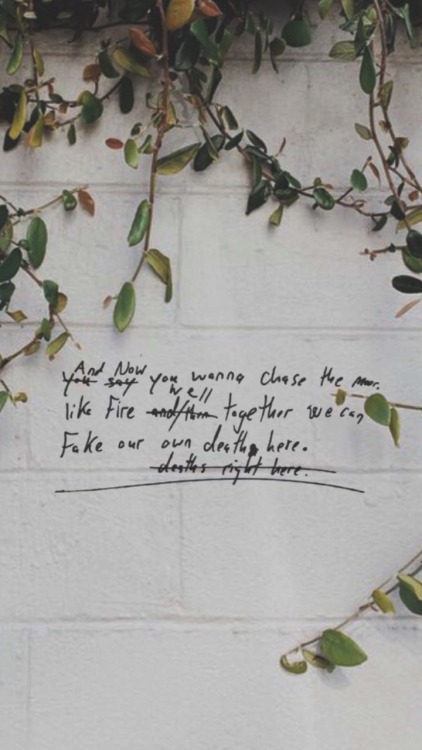 And Now
you say you wanna chase the
we'll
like Fire together we can
Fake our own deaths here.
deaths right here.